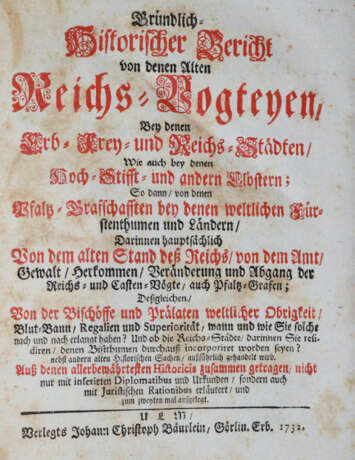 Gründlich-
Historischer Bericht
von denen Alten
Reichs-Vogteyen/
Bey denen
Erb-Frey-und Reichs-Städten/
Wie auch bey denen
Hoch-Stifft-und andern Clöstern;
So dann/ von denen
Pfaltz-Graffschafften bey denen weltlichen Für-
stenthumen und Ländern/
Darinnen hauptsächlich
Von dem alten Stand deß Reichs/ von dem Amt/
Gewalt/ Herkommen/ Veränderung und Abgang der
Reichs-und Casten-Vögte/ auch Pfaltz-Grafen;
Deßgleichen/
Von der Bischöffe und Prälaten weltlicher Obrigkeit/
Blut-Bann/ Regalien und Superiorität/ wann und wie Sie solche
nach und nach erlangt haben? Und ob die Reichs-Städte/ darinnen Sie resi-
diren/ denen Bißthumen durchauß incorporirt worden seyen?
nebst andern alten Historischen Sachen/ außführlich gehandelt wird.
Auß denen allerbewährtesten Historicis zusammen getragen/ nicht
nur mit inserirten Diplomatibus und Urkunden/ sondern auch
mit Juristischen Rationibus erläutert/ und
zum zweyten mal aufgelegt.
ULM/
Verlegts Johann Christoph Bäurlein/ Görlin. Erb. 1732.